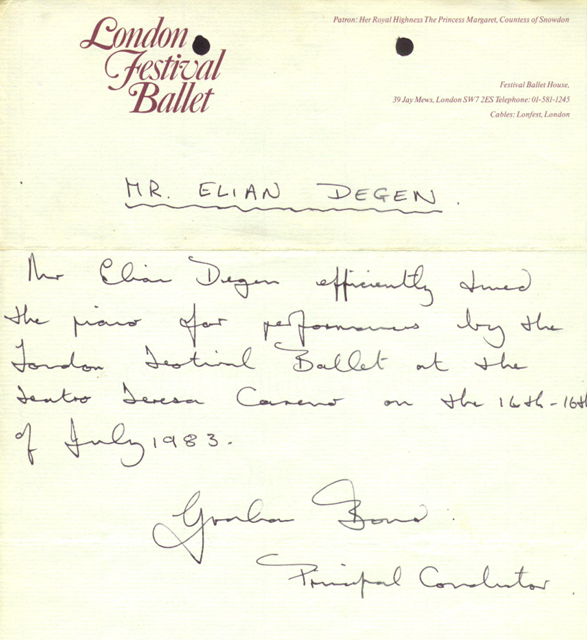 London
Festival
Ballet
Patron: Her Royal Highness The Princess Margaret, Countess of Snowdon
Festival Ballet House,
39 Jay Mews, London SW7 2ES Telephone: 01-581-1245
Cables: Lonfest, London
MR. ELIAN DEGEN.
Mr Elian Degen efficiently tuned
the piano for performances by the
London Festival Ballet at the
Teatro Teresa Careno on the 14th-16th
of July 1983.
Graham Bond.
Principal Conductor.